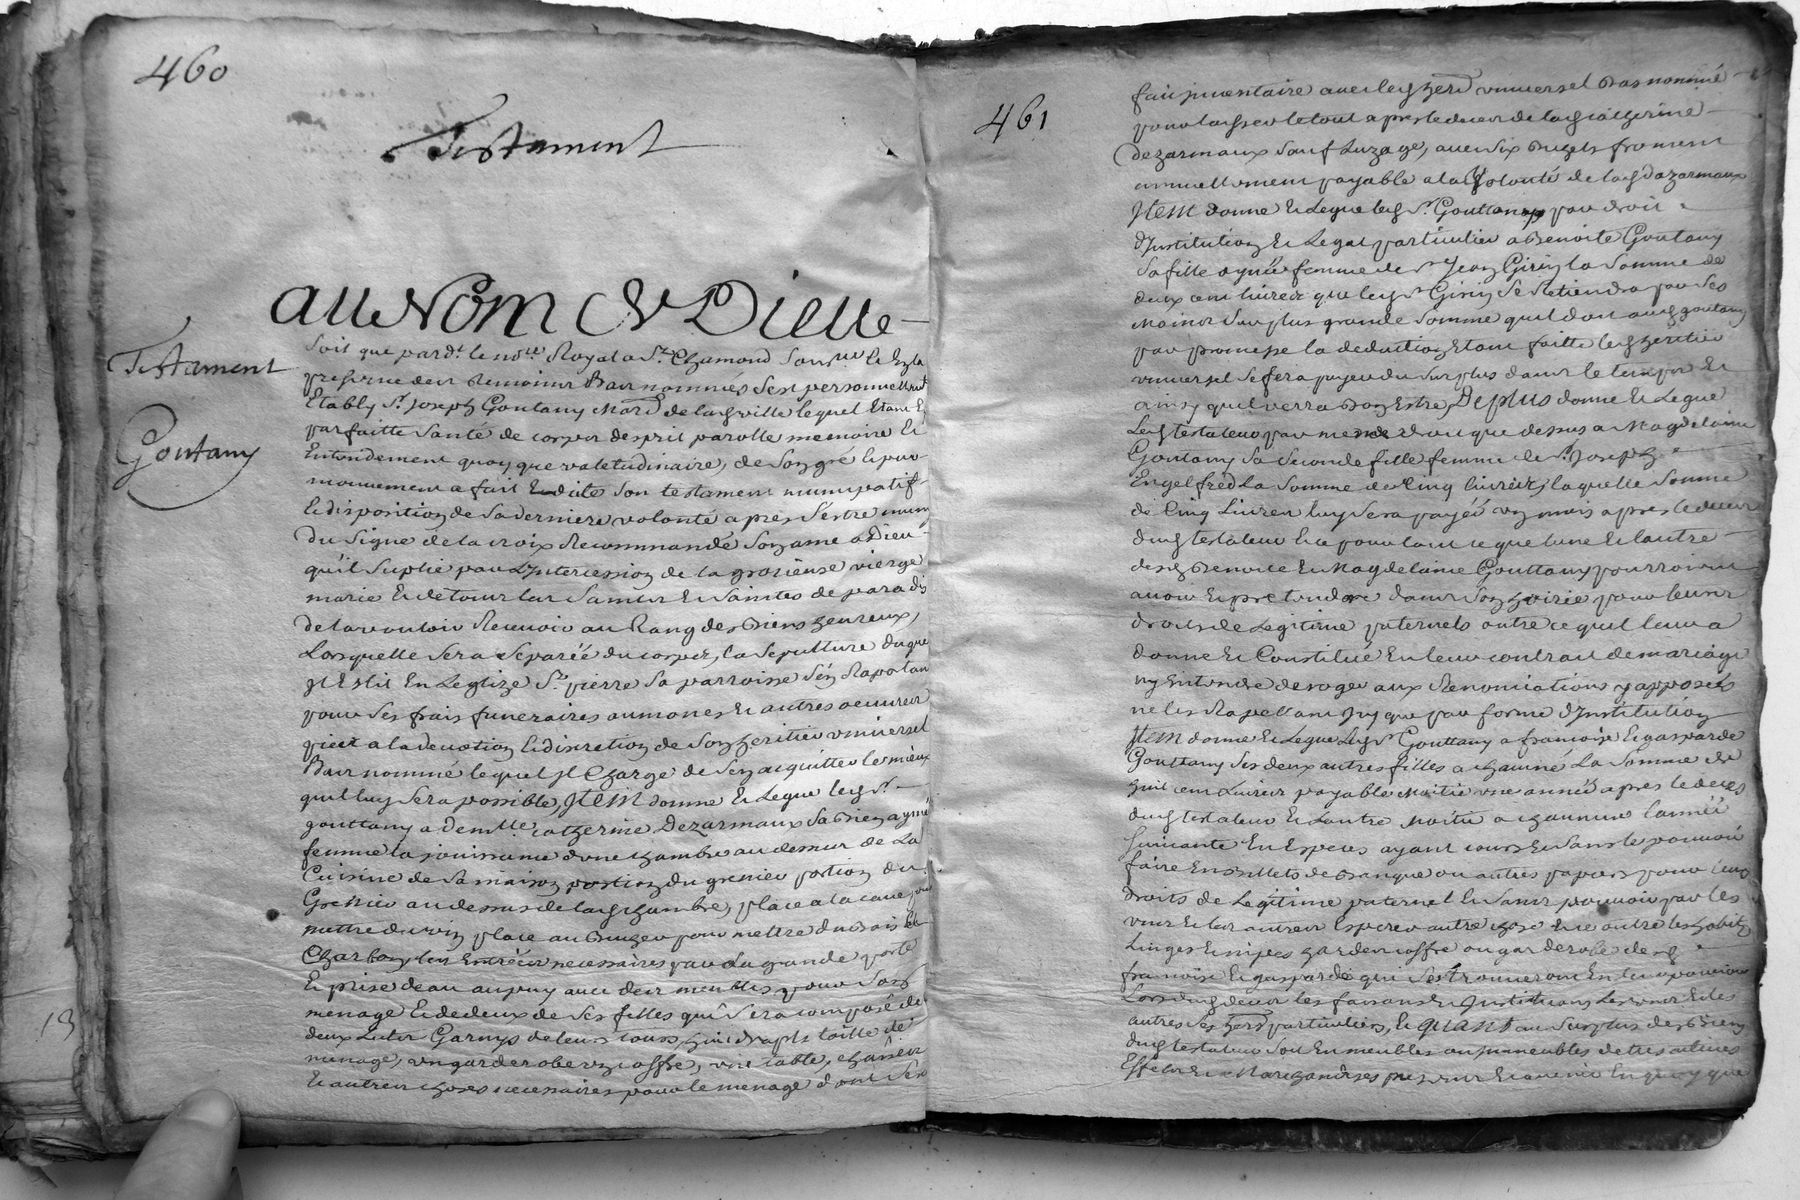 460
Testament
Au Nom de Dieu
Testament
Goutany
Soit que pardt. le nore. Royal a St. Chamond soussné. et En la
presence des temoins bas nommés s'est personnellemt.
Etably Sr. Joseph Goutany Mard. de lad. ville lequel Etant En
parfaitte santé de corps desprit parolle memoire et
Entendement quoy que valetudinaire, de son gré et pur
mouvement a fait son testament nuncupatif
et disposition de sa derniere volonté apres s'estre muny
du signe de la croix Recommandé son ame a Dieu
qu'il suplie par L'Intercession de la glorieuse vierge
marie et de tous les saints et saintes de paradis
de la vouloir Recevoir au Rang des biens heureux,
Lors quelle sera separéé du corps, la sepulture duquel
Il Eslit En Leglize St. pierre sa parroisse s'en Raportant
pour ses frais funeraires aumones et autres oeuvres
pies a la devotion et discretion de son heritier universel
bas nommé lequel Il Charge de s'en acquitter le mieux
quil luy sera possible, Item donne et Legue led. Sr.
gouttany a demlle catherine Dezarmaux sa bien aymé
femme la jouissance d'une chambre au dessus de La
Cuisine de sa maison portion du grenier portion du
Grenier au dessus de lad. chambre, place a la cave pour
mettre du vin place au bucher pour mettre du bois et
Charbon les Entréés necessaires par La grande porte
Et prise deau au puy avec des meubles pour son
menage et de deux de ses filles qui sera composé de
deux Lits Garnys de leurs tours, huit draps toille de
menage, un garderobe un coffre, une table, chaises
et autres choses necessaires pour le menage dont sera
13
461
fait inventaire avec led. herr. universel bas nommé
pour laisser le tout apres le deces de lad. catherine
Dezarmaux sauf Luzage, avec six bichets froment
annuellement payable a la volonté de lad. Dazarmaux
Item donne et Legue led. Sr. Gouttany par droit
d'Institution et Legat particulier a benoite Goutany
sa fille aynée femme de Sr. Jean Girin la somme de
deux cent livres que led. Sr. Girin se Retiendra par ses
mains sur plus grande somme quil doit aud. goutany
par promesse la deduction Etant faitte led. heritier
universel se fera payer du surplus dans le temps et
ainsy quil verra bon Estre, De plus donne et Legue
Led. testateur par meme droit que dessus a Magdelaine
Goutany sa seconde fille femme de Sr. Joseph
Engelfred La somme de cinq livres, laquelle somme
de cinq Livres luy sera payéé un mois apres le deces
dud. testateur et ce pour tout ce que lune et lautre
desd. benoite et Magdelaine Gouttany pourroient
avoir et pretendre dans son hoirie pour leurs
droits de Legitime paternels outre ce quil leur a
donné et Constitué En leur contrat de mariage
ny Entendre deroger aux Renonciations y apposéés
ne les Rapellant Icy que par forme d'Institution
Item donne et Legue Led. Sr. Gouttany a francoise et gasparde
Gouttany ses deux autres filles a chacune La somme de
huit cent Livres payable Moitié une année apres le deces
dud. testateur et Lautre Moitié a chacune lannéé
suivante En Especes ayant cours et sans le pouvoir
faire En billets de banque ou autres papiers pour leurs
droits de Legitime paternel et sans pouvoir par les
unes et les autres Esperer autre chose et ce outre les habits
Linges Enipes hardes coffre ou garderobe desd.
francoise et gasparde qui se trouveront En leur pouvoir
Lors dud. deces les faisant et Instituant Les unes et les
autres ses herr. particuliers, Et quant au surplus des biens
dud. testateur soit En meubles ou Immeubles dettes actives
Effets et Marchandises presents et avenir En quoy que